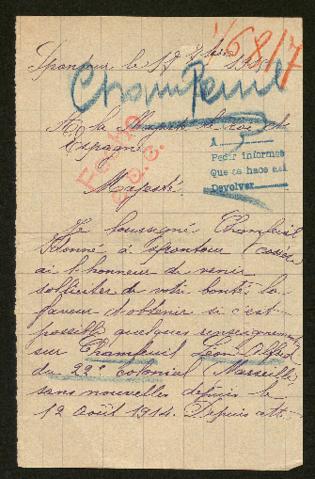 1/6817
Spontour le 17
Champeuil
A Sa Majesté le Roi
Espagne
A
Pedir informes
Que se hace así
Devolver
Majesté
Je soussigné Champeuil
à Spontour (Corrèze)
ai l'honneur de venir
solliciter de votre bonté la
faveur d'obtenir si c'est
possible quelques renseignements
sur Champeuil Léon Alfred
du 22e colonial (Marseille)
sans nouvelles depuis le
12 août 1914. Depuis